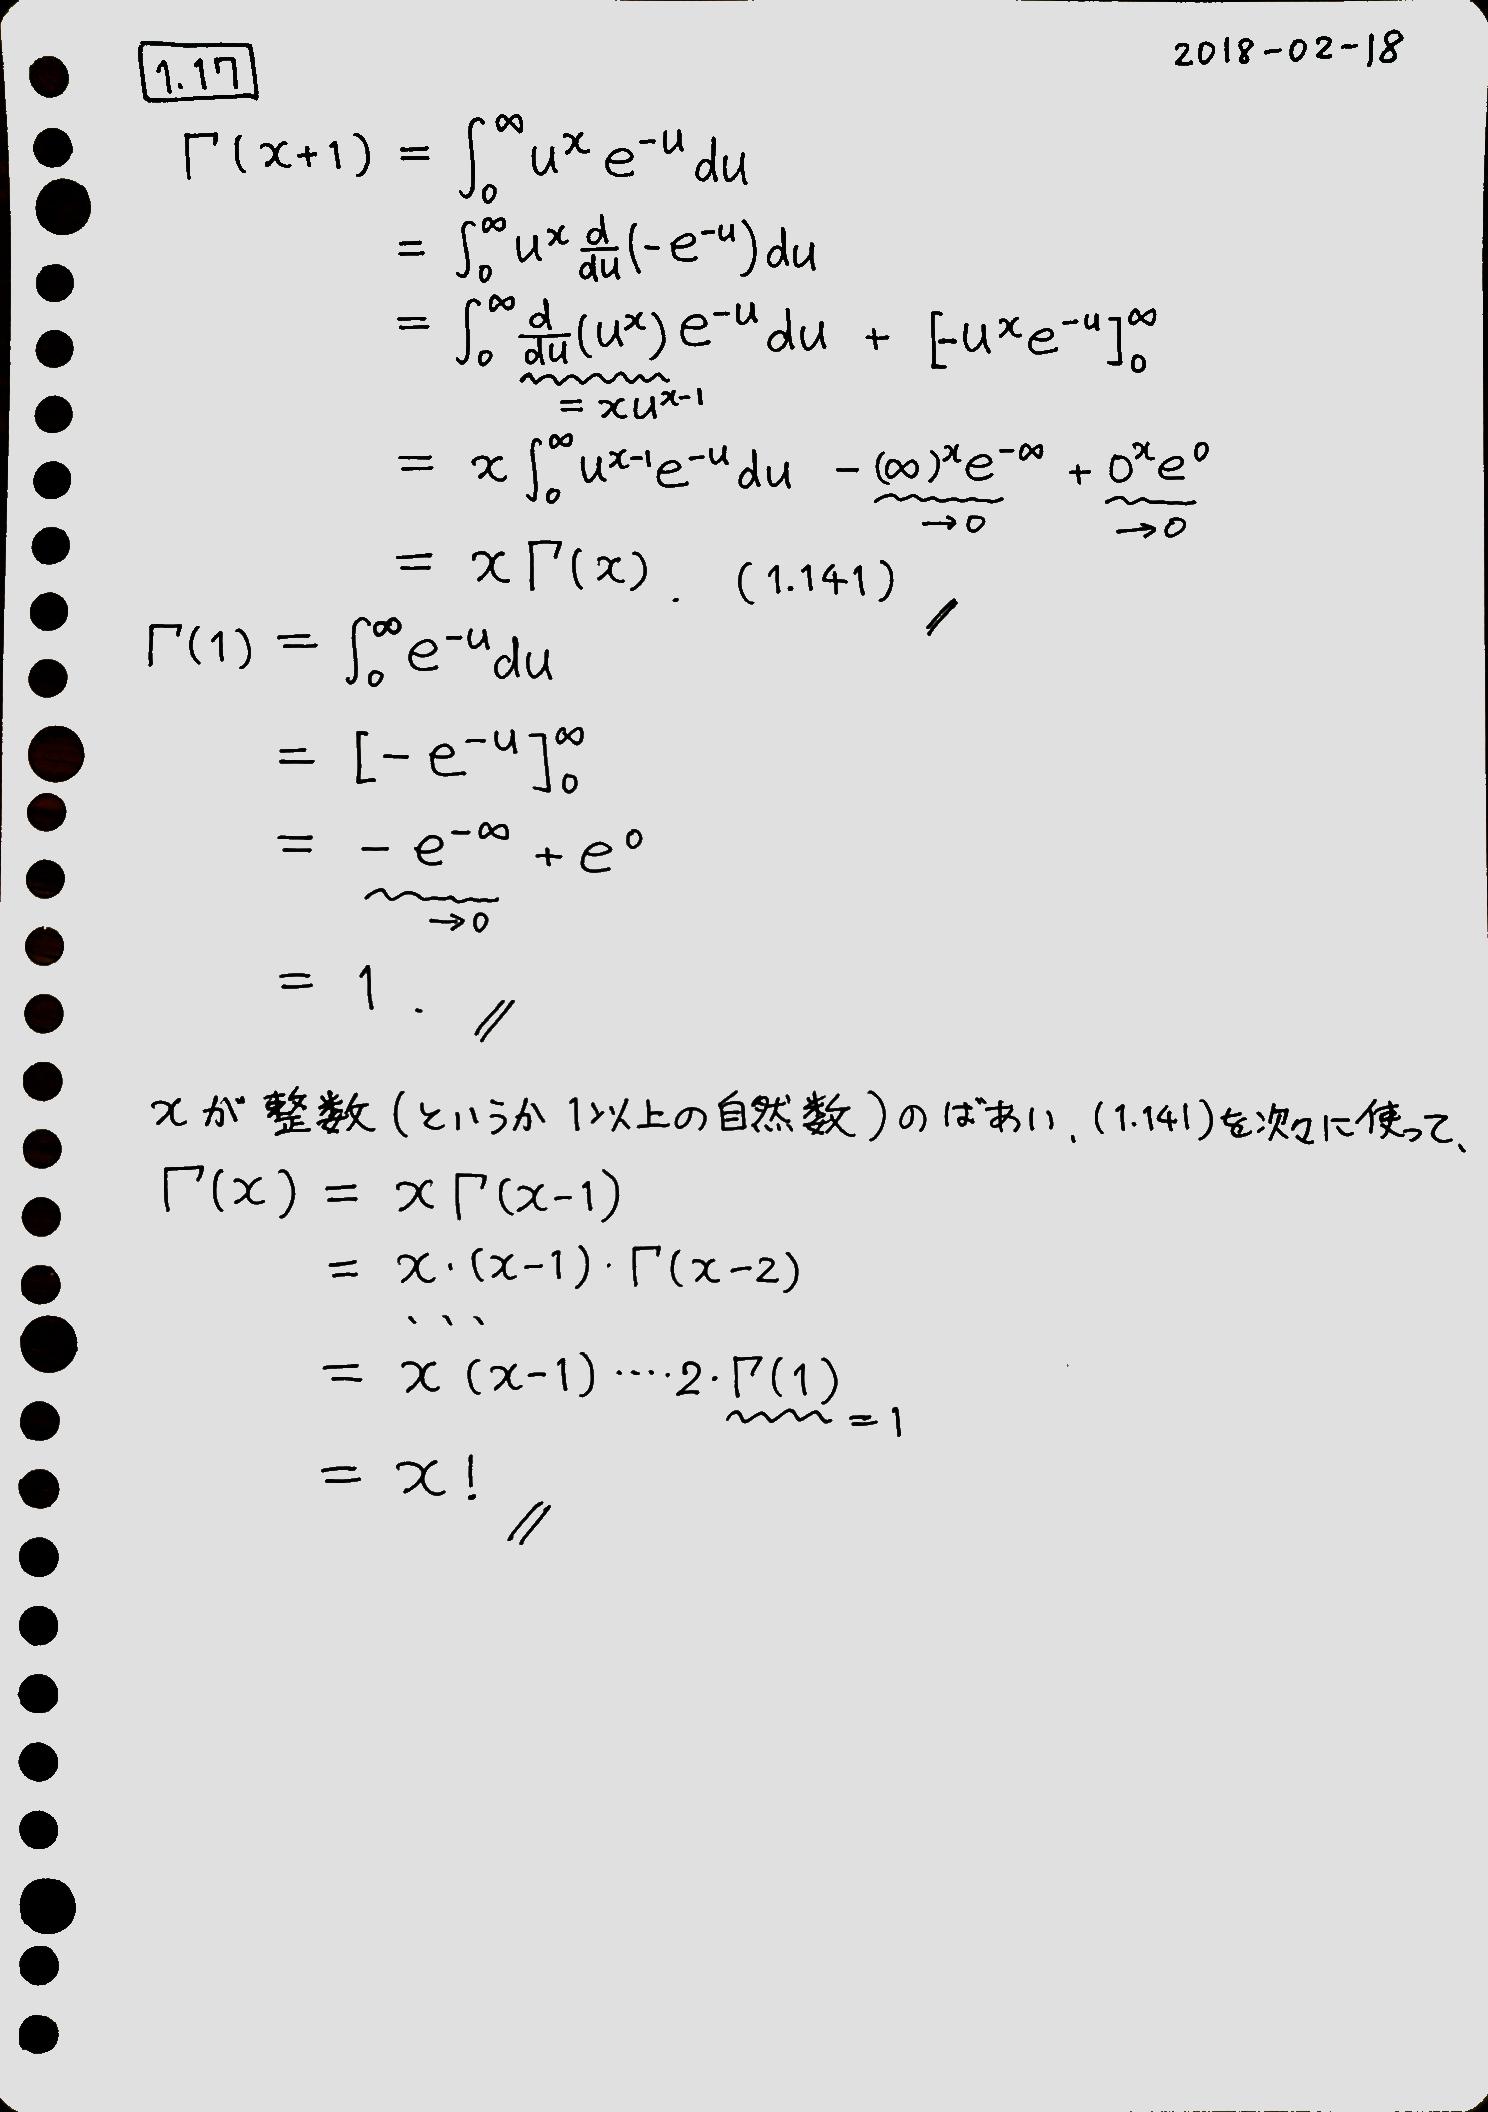 1.17 2018-02-18
Γ(x+1) = ∫₀^∞ u^x e^{-u} du
= ∫₀^∞ u^x d/du (-e^{-u}) du
= ∫₀^∞ d/du (u^x) e^{-u} du + [-u^x e^{-u}]₀^∞
= xu^{x-1}
= x ∫₀^∞ u^{x-1} e^{-u} du - (∞)^x e^{-∞} + 0^x e^0
→0 →0
= x Γ(x). (1.141) /
Γ(1) = ∫₀^∞ e^{-u} du
= [-e^{-u}]₀^∞
= -e^{-∞} + e^0
→0
= 1. //
xが整数(というか1以上の自然数)のばあい、(1.141)を次々に使って、
Γ(x) = x Γ(x-1)
= x・(x-1)・Γ(x-2)
、、、
= x (x-1) ····2・Γ(1)
= 1
= x! //